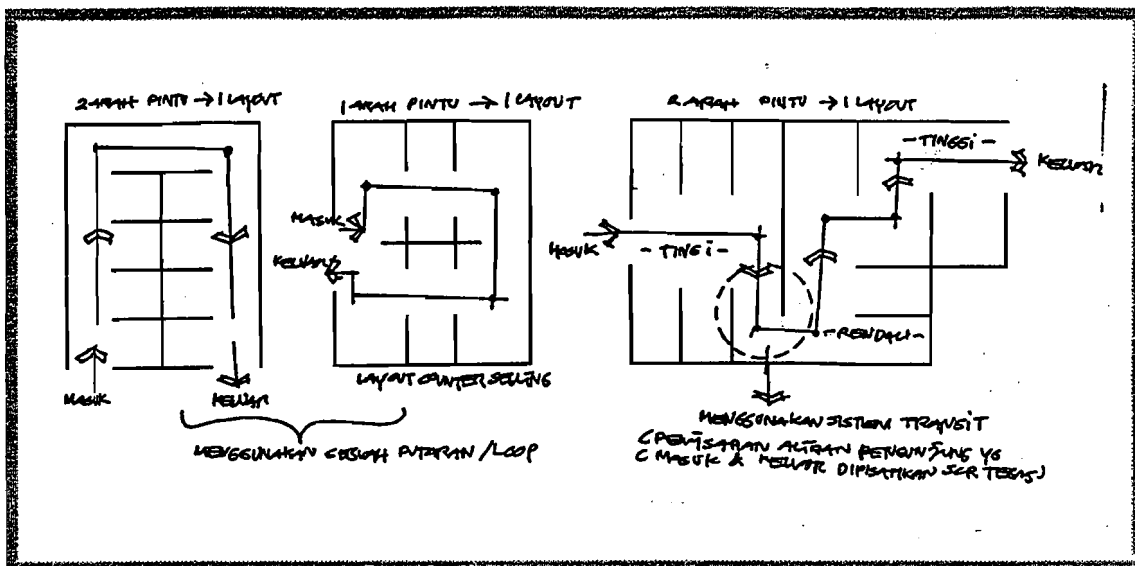 2 ARAH PINTU → 1 LAYOUT
MASUK
KELUAR
1 ARAH PINTU → 1 LAYOUT
MASUK
KELUAR
LAYOUT COUNTER SELLING
MENGGUNAKAN SEBUAH PUTARAN / LOOP
2 ARAH PINTU → 1 LAYOUT
- TINGGI -
KELUAR
MASUK
- TINGGI -
- RENDAH -
MENGGUNAKAN SISTEM TRANSIT
( PEMISAHAN ALIRAN PENGUNJUNG YG
( MASUK & KELUAR DIPISAHKAN SCR TEGAS )